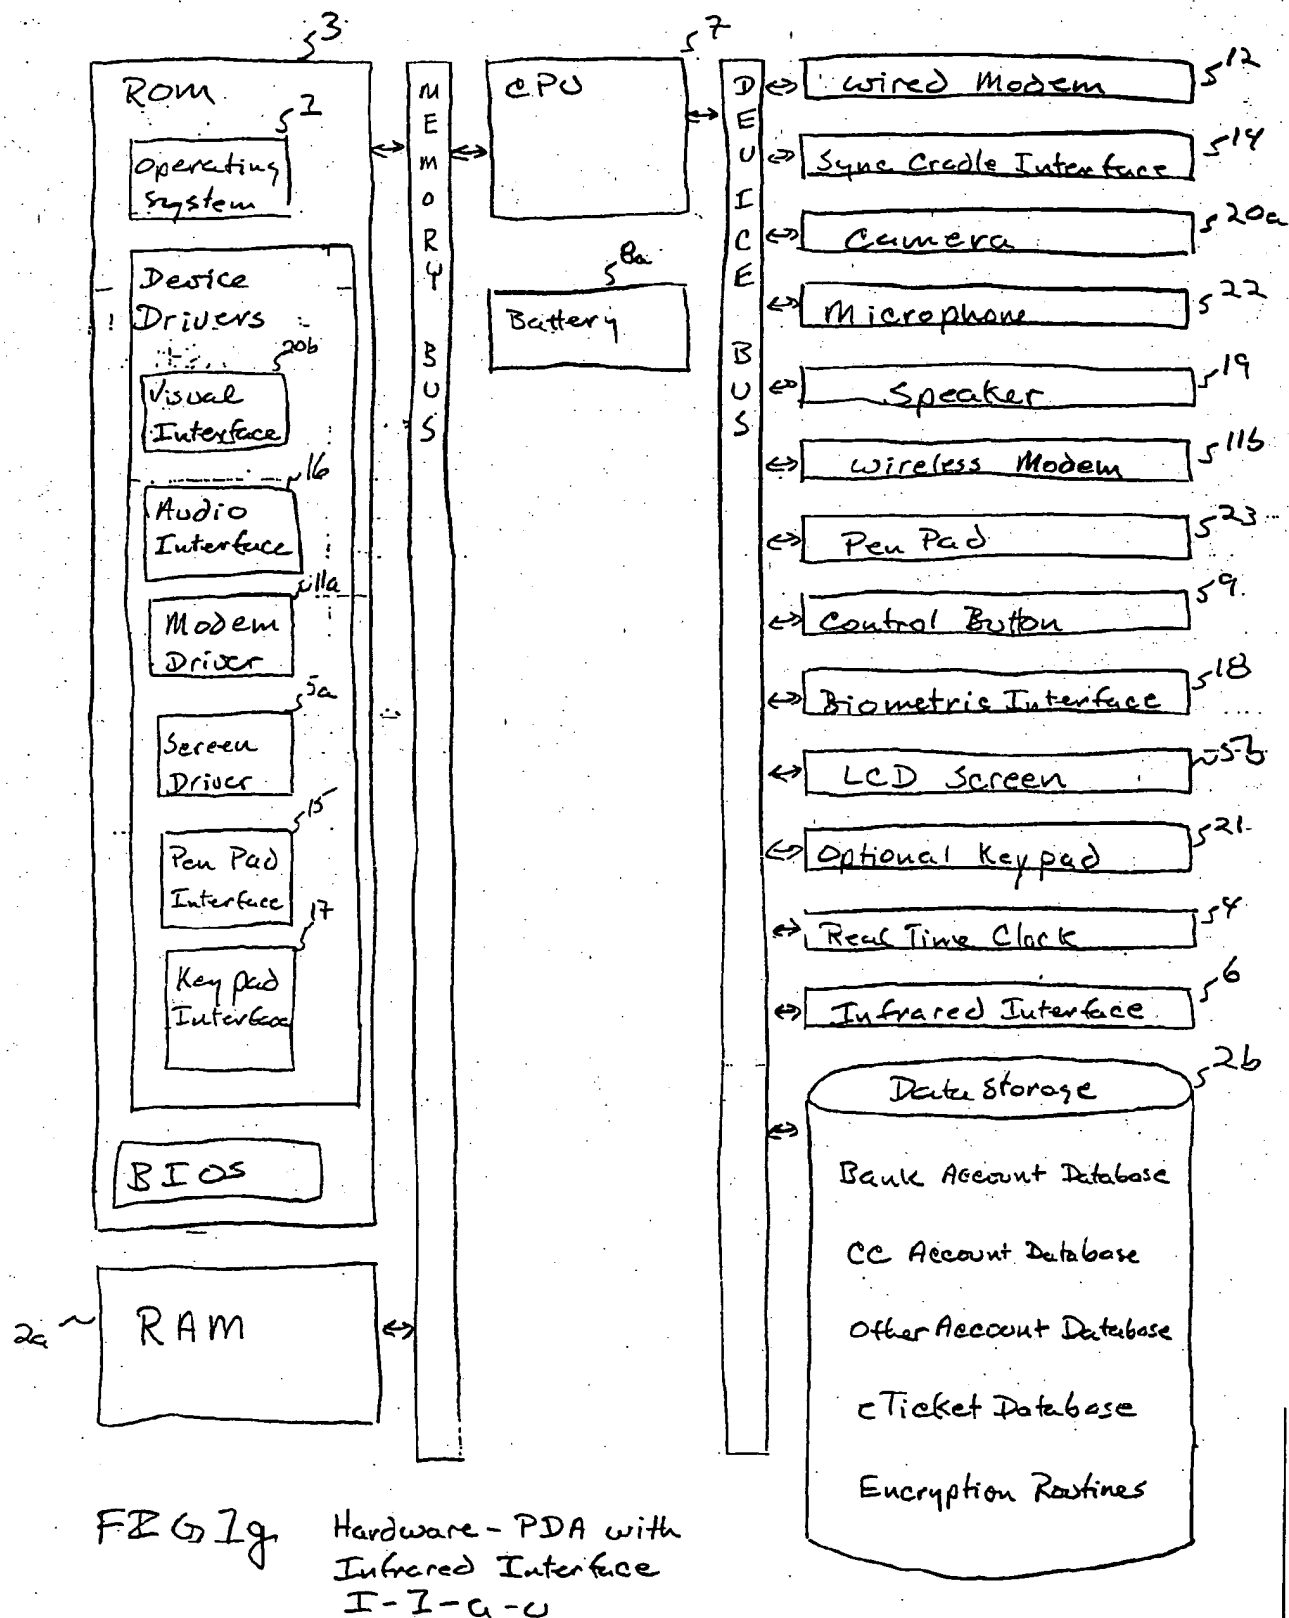 3
ROM
1
Operating
System
Device
Drivers
20b
Visual
Interface
16
Audio
Interface
11a
Modem
Driver
5a
Screen
Driver
15
Pen Pad
Interface
17
Keypad
Interface
BIOS
2a
RAM
MEMORY BUS
7
CPU
8a
Battery
DEVICE BUS
Wired Modem
12
Sync Cradle Interface
14
Camera
20a
Microphone
22
Speaker
19
Wireless Modem
11b
Pen Pad
23
Control Button
9
Biometric Interface
18
LCD Screen
5b
Optional Keypad
21
Real Time Clock
4
Infrared Interface
6
Data Storage
2b
Bank Account Database
CC Account Database
Other Account Database
eTicket Database
Encryption Routines
FIG 1g
Hardware - PDA with
Infrared Interface